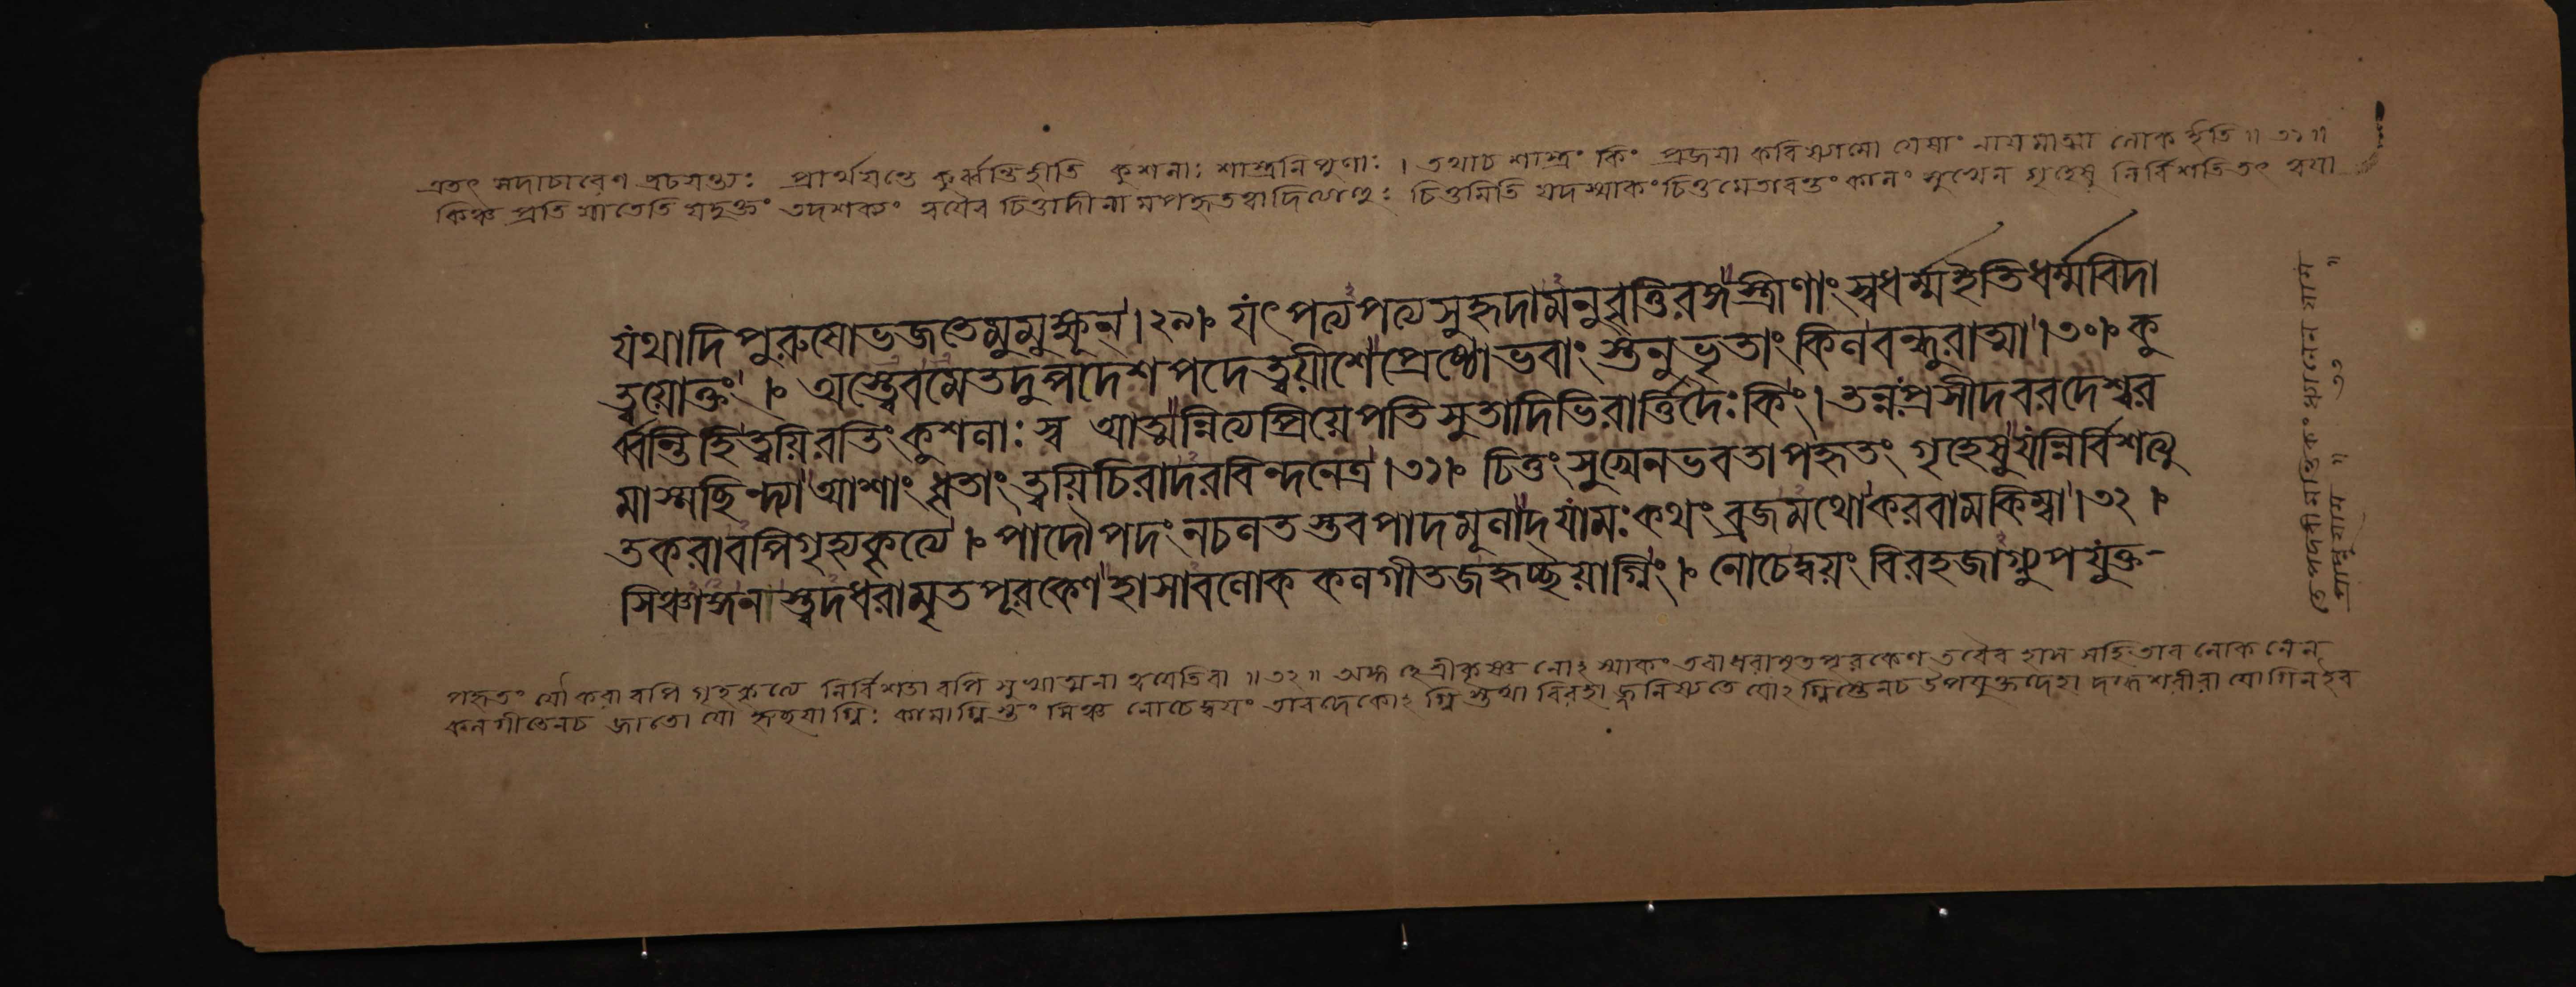 এতৎ সদাচারেণ প্রচয়ন্ত্যঃ প্রার্থয়ন্তে কুর্ব্বন্তিহীতি কুশলাঃ শাস্ত্রনিপুণাঃ । তথাচ শাস্ত্রং কিং প্রজয়া করিষ্যামো যেষাং নায়মাত্মা লোক ইতি ॥ ৩১ ॥
কিঞ্চ প্রতি যাতেতি যদুক্তং তদশক্যং ত্বয়ৈব চিত্তাদীনামপহৃতত্বাদিত্যাহুঃ চিত্তমিতি যদস্মাকং চিত্তমেতাবন্তং কালং সুখেন গৃহেষু নির্বিশতি তৎ ত্বয়া
যথাদিপুরুষোভজতেমুমুক্ষূন্ ।২৯।০ যৎ পত্যপত্যসুহৃদামনুবৃত্তিরঙ্গস্ত্রীণাং স্বধর্ম্মইতিধর্ম্মবিদা
ত্বয়োক্তং ।০ অস্ত্বেবমেতদুপদেশপদেত্বয়ীশেপ্রেষ্ঠোভবাং স্তনুভৃতাং কিলবন্ধুরাত্মা ।৩০।০ কু
র্ব্বন্তিহিত্বয়িরতিং কুশলাঃ স্ব আত্মন্নিত্যপ্রিয়েপতিসুতাদিভিরার্ত্তিদৈঃ কিং । তন্নঃপ্রসীদবরদেশ্বর
মাস্মছিন্দ্যা আশাং ধৃতাং ত্বয়িচিরাদরবিন্দনেত্র ।৩১।০ চিত্তং সুখেনভবতাপহৃতং গৃহেষুযন্নির্বিশত্যু
তকরাবপিগৃহ্যকৃত্যে ।০ পাদৌপদং নচলতস্তবপাদমূলাদ্যামঃ কথং ব্রজমথোকরবামকিম্বা ।৩২ ।০
সিঞ্চাঙ্গনস্ত্বদধরামৃতপূরকেণহাসাবলোককলগীতজহৃচ্ছয়াগ্নিং ।০ নোচেদ্বয়ং বিরহজাগ্ন্যুপযুক্ত-
পহৃতং যৌ করাবপি গৃহকৃত্যে নির্বিশতাবপি সুখাত্মনা ত্বয়েতিবা ॥ ৩২ ॥ অঙ্গ হে শ্রীকৃষ্ণ নোঽস্মাকং তবাধরামৃতপূরকেণ তবৈব হাস সহিতাবলোকনেন
কলগীতেনচ জাতো যো হৃচ্ছয়াগ্নিঃ কামাগ্নিস্তং সিঞ্চ নোচেদ্বয়ং তাবদেকোঽগ্নিস্তথা বিরহাজ্জনিষ্যতে যোঽগ্নিস্তেনচ উপযুক্তদেহা দগ্ধশরীরা যোগিনইব
তে পদবীমন্তিকং ধ্যানেন যাম
প্রাপ্নুয়াম ॥ ৩৩ ॥